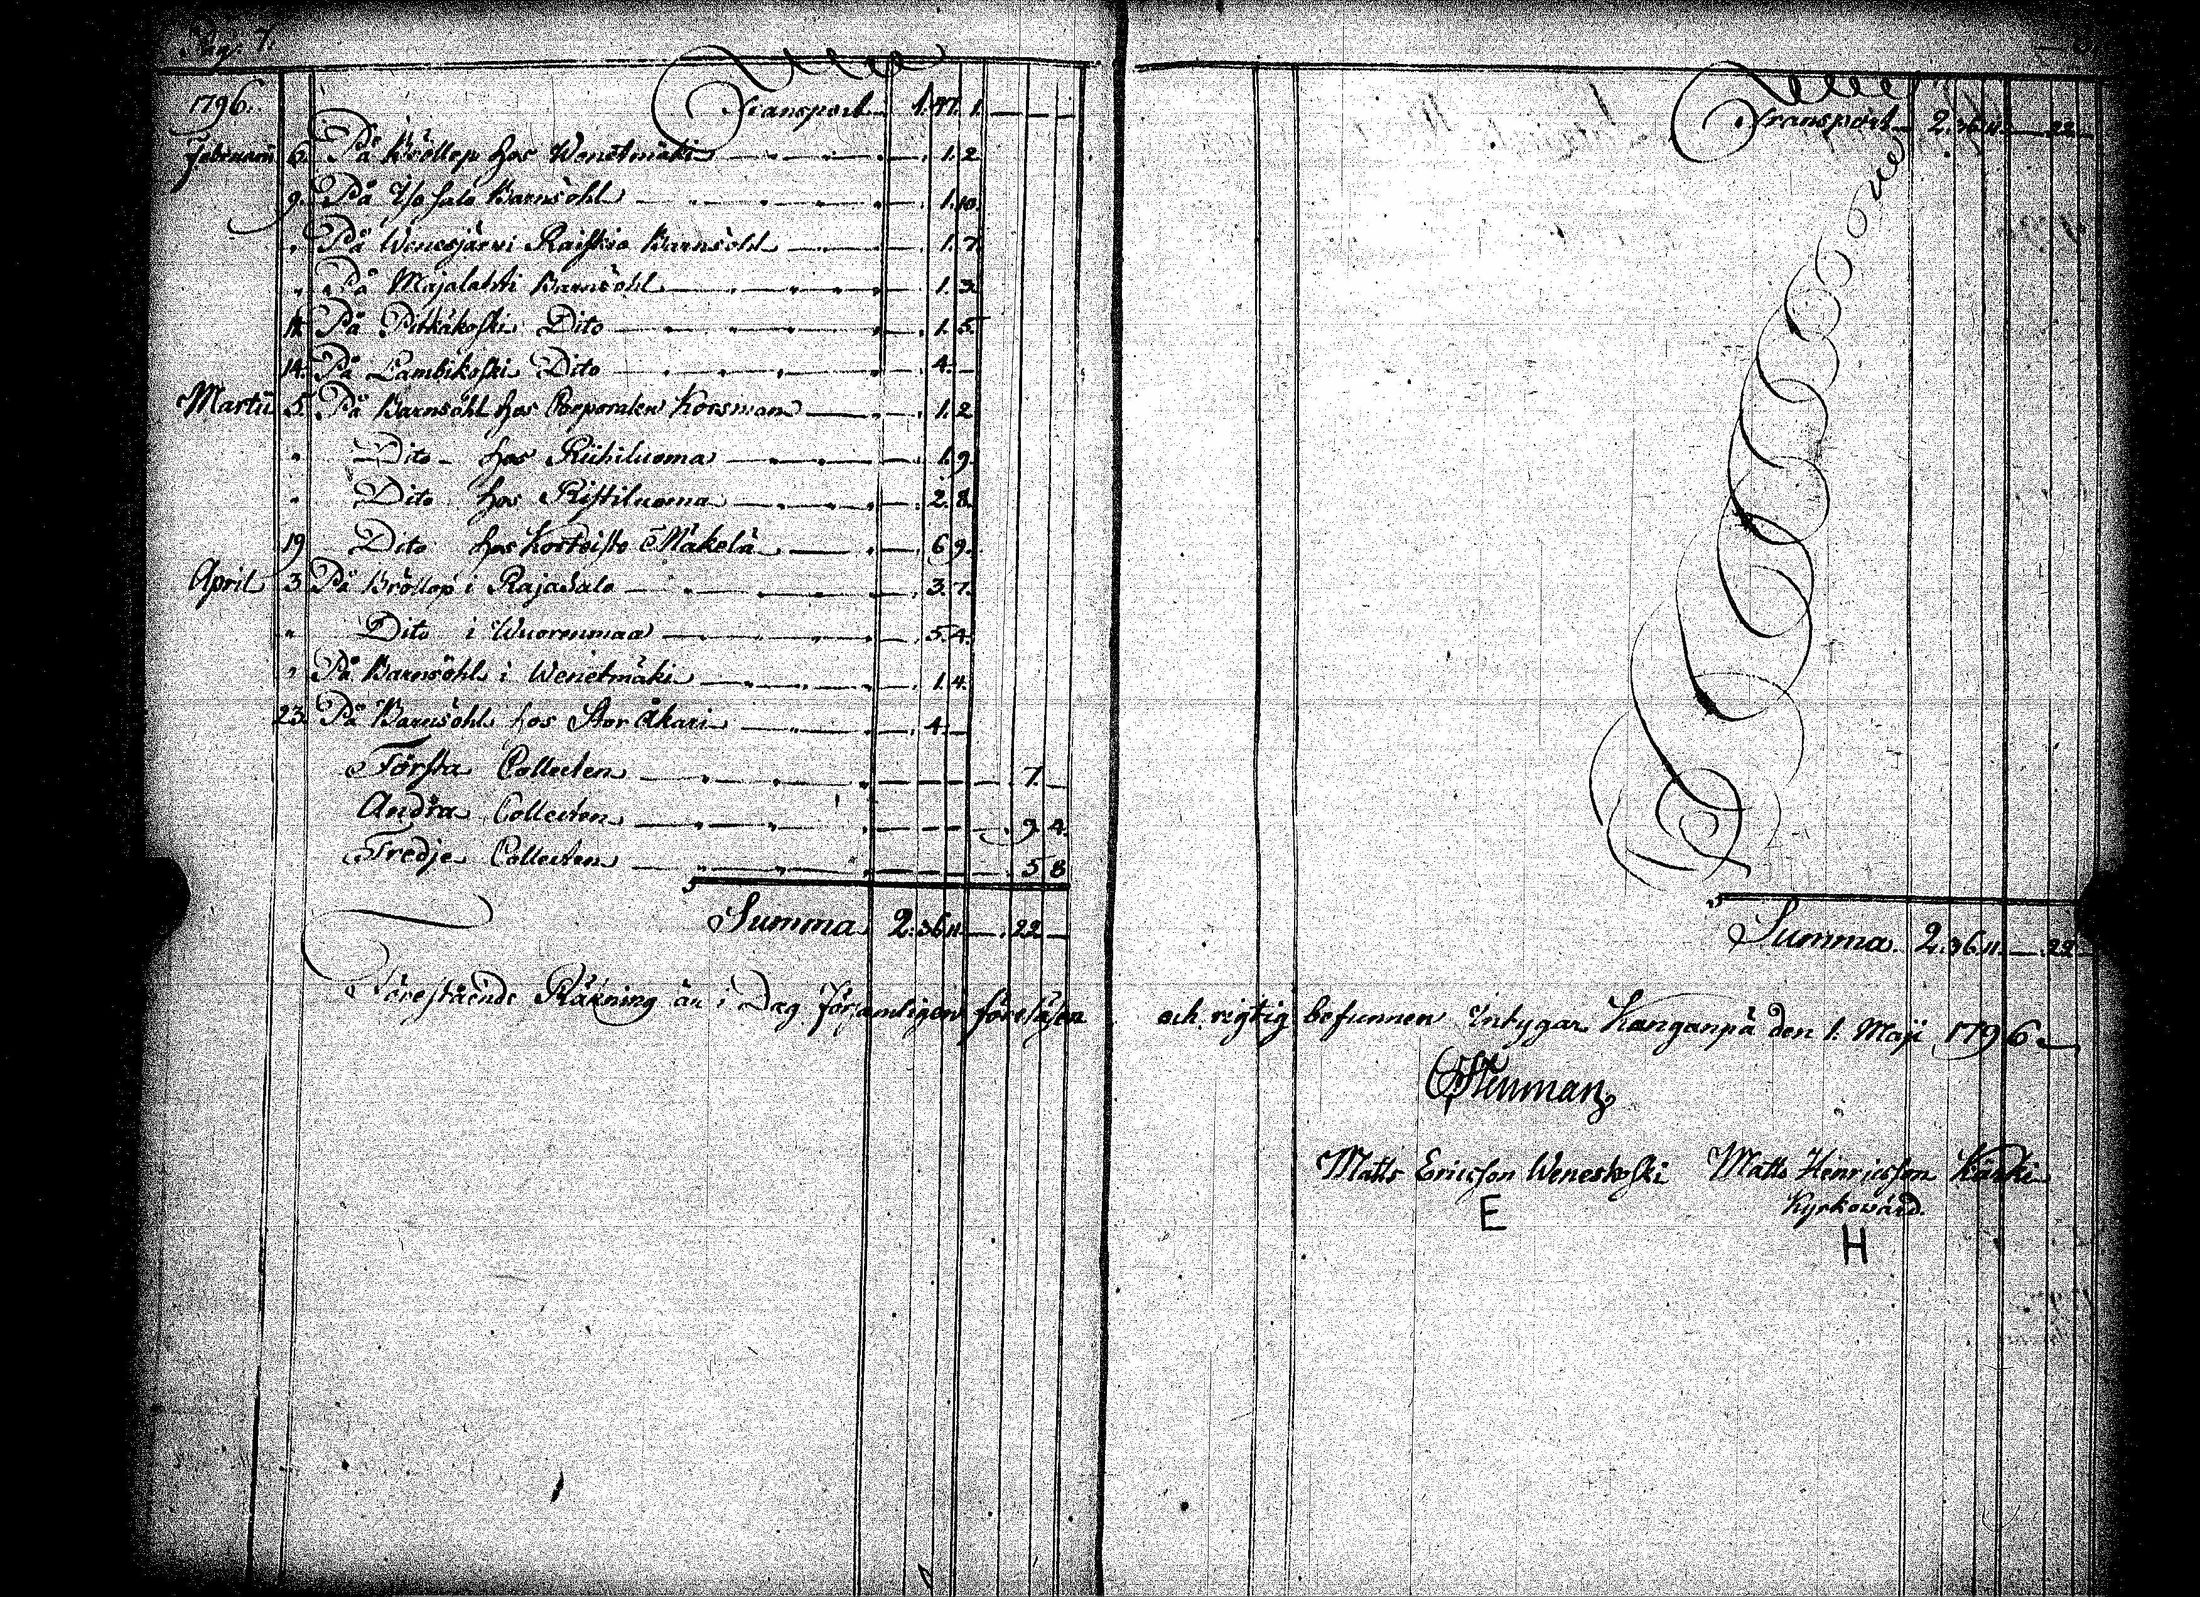 Pag. 7.
1796. Transport 1. 47. 1. — — —
Februarii 6. På Bröllop hos Wenetmäki — 1. 2.
9. På Iso salo Barnsöhl — 1. 10.
" På Wenesjärwi Raiskio Barnsöhl — 1. 7.
" På Majalahti Barnsöhl — 1. 3.
11. På Pitkäkoski Dito — 1. 5.
14. På Lambikoski Dito — 4. —
Martii 5. På Barnsöhl hos Corporalen Korsman — 1. 2.
" Dito hos Riihiluoma — 1. 9.
" Dito hos Ristiluoma — 2. 8.
19 Dito hos Korteisto Mäkelä — 6. 9.
April 3. På Bröllop i Rajasalo — 3. 7.
" Dito i Wuorenmaa — 5. 4.
" På Barnsöhl i Wenetmäki — 1. 4.
23. På Barnsöhl hos Stor Åkari — 4. —
Första Collecten — 7. —
Andra Collecten — 9. 4.
Tredje Collecten — 5. 8
Summa 2. 36. 11. — 22 —
Förestående Räkning är i Dag församligen föreläsen
Transport 2. 36. 11. — 22 —
Summa. 2. 36. 11. — 22 —
och rigtig befunnen Intygar Kanganpä den 1. Maji 1796.
Matts Ericsson Weneskoski Matts Henricsson Karki
E Kyrkowärd.
H